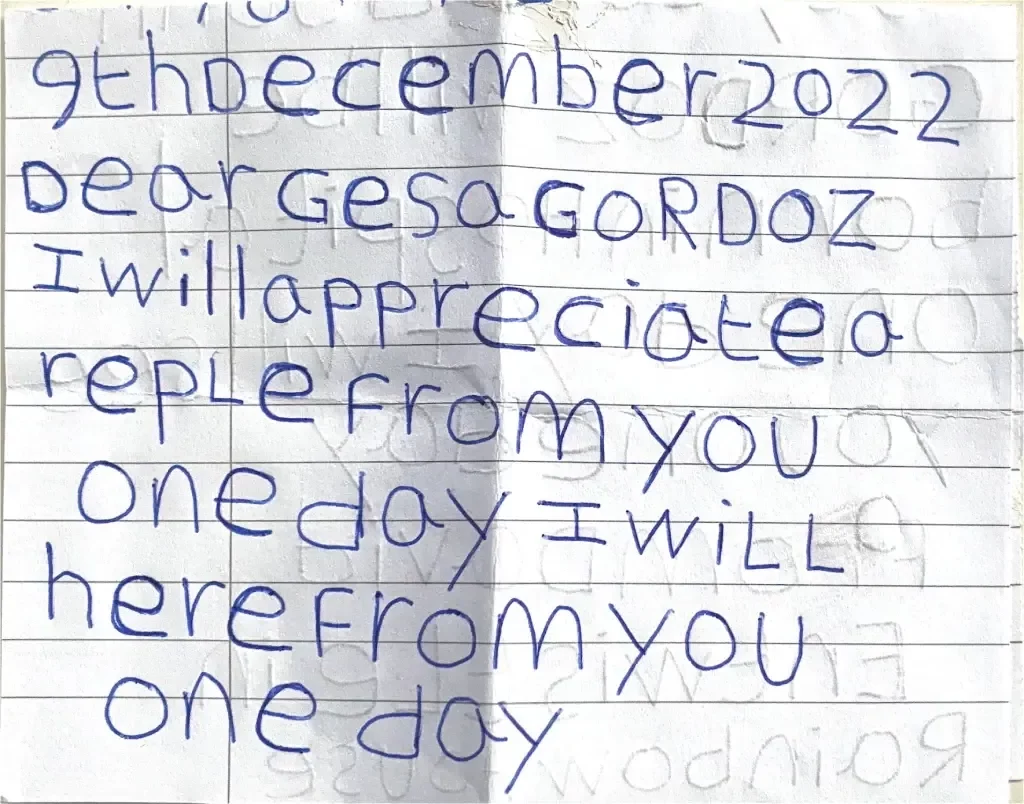 9th December 2022
Dear Gesa GORDOZ
I will appreciate a
repLe From you
one day I wiLL
here From you
one day